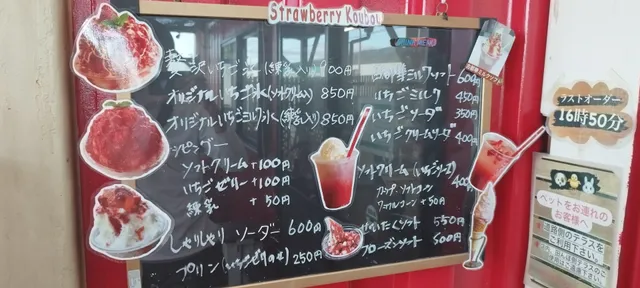 Strawberry Koubou
贅沢いちご氷(練乳入り)900円
オリジナルいちご氷(ソフトクリーム入)850円
オリジナルいちごミルク氷(練乳入り)850円
トッピング
ソフトクリーム+100円
いちごゼリー+100円
練乳 +50円
しゃりしゃりソーダ 600円
プリン(いちごゼリーのせ)250円
ミルクソフト 600円
いちごミルク 450円
いちごソーダ 350円
いちごクリームソーダ 400円
ソフトクリーム(いちごソース)
400円
カップ・ソフトコーン
ワッフルコーン+50円
ぜいたくソフト 550円
フローズンソフト 500円
ラストオーダー
16時50分
ペットをお連れの
お客様へ
道路側のテラスを
ご利用下さい。